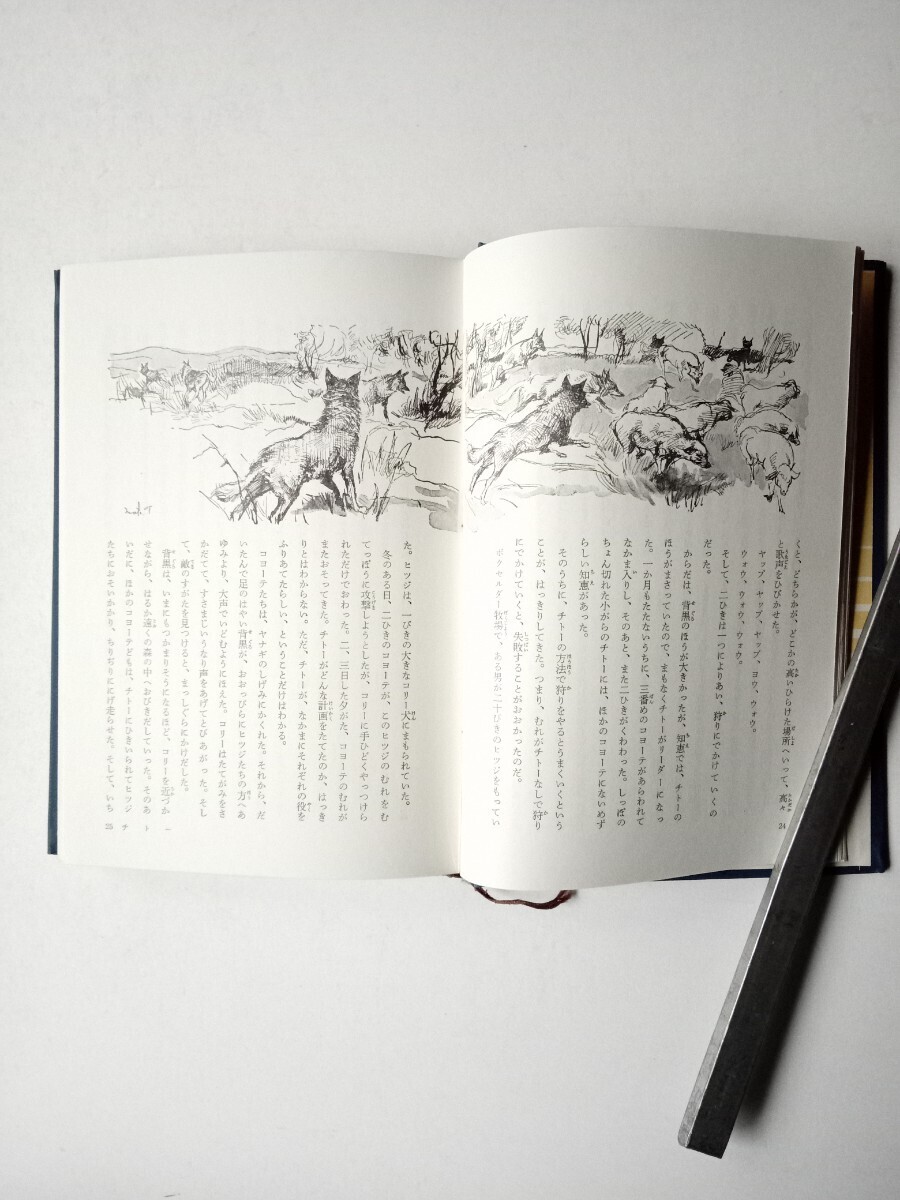 くと、どちらかが、どこかの高いひらけた場所へいって、高々
と歌声をひびかせた。
ヤップ、ヤップ、ヤップ、ヨウ、ウォウ。
ウォウ、ウォウウ、ウォウ。
そして、二ひきは一つによりあい、狩りにでかけていくの
だった。
からだは、背黒のほうが大きかったが、知恵では、チトーの
ほうがまさっていたので、まもなくチトーがリーダーになっ
た。一か月もたたないうちに、三番めのコヨーテがあらわれて
なかま入りし、そのあと、また二ひきがくわわった。しっぽの
ちょん切れた小がらのチトーには、ほかのコヨーテにないめず
らしい知恵があった。
そのうちに、チトーの方法で狩りをやるとうまくいくという
ことが、はっきりしてきた。つまり、むれがチトーなしで狩り
にでかけていくと、失敗することがおおかったのだ。
ボクセルダー牧場で、ある男が二十ぴきのヒツジをもってい
24
た。ヒツジは、一ぴきの大きなコリー犬にまもられていた。
冬のある日、二ひきのコヨーテが、このヒツジのむれをむ
てっぽうに攻撃しようとしたが、コリーに手ひどくやっつけら
れただけでおわった。二、三日した夕がた、コヨーテのむれが
またおそってきた。チトーがどんな計画をたてたのか、はっき
りとはわからない。ただ、チトーが、なかまにそれぞれの役を
ふりあてたらしい、ということだけはわかる。
コヨーテたちは、ヤナギのしげみにかくれた。それから、だ
いたんで足のはやい背黒が、おおっぴらにヒツジたちの方へあ
ゆみより、大声でいどむようにほえた。コリーはたてがみをさ
かだてて、すさまじいうなり声をあげてとびあがった。そし
て、敵のすがたを見つけると、まっしぐらにかけだした。
背黒は、いまにもつかまりそうになるほど、コリーを近づか
せながら、はるか遠くの森の中へおびきだしていった。そのあ
いだに、ほかのコヨーテどもは、チトーにひきいられてヒツジ
たちにおそいかかり、ちりぢりににげ走らせた。そして、いち
25 チトー